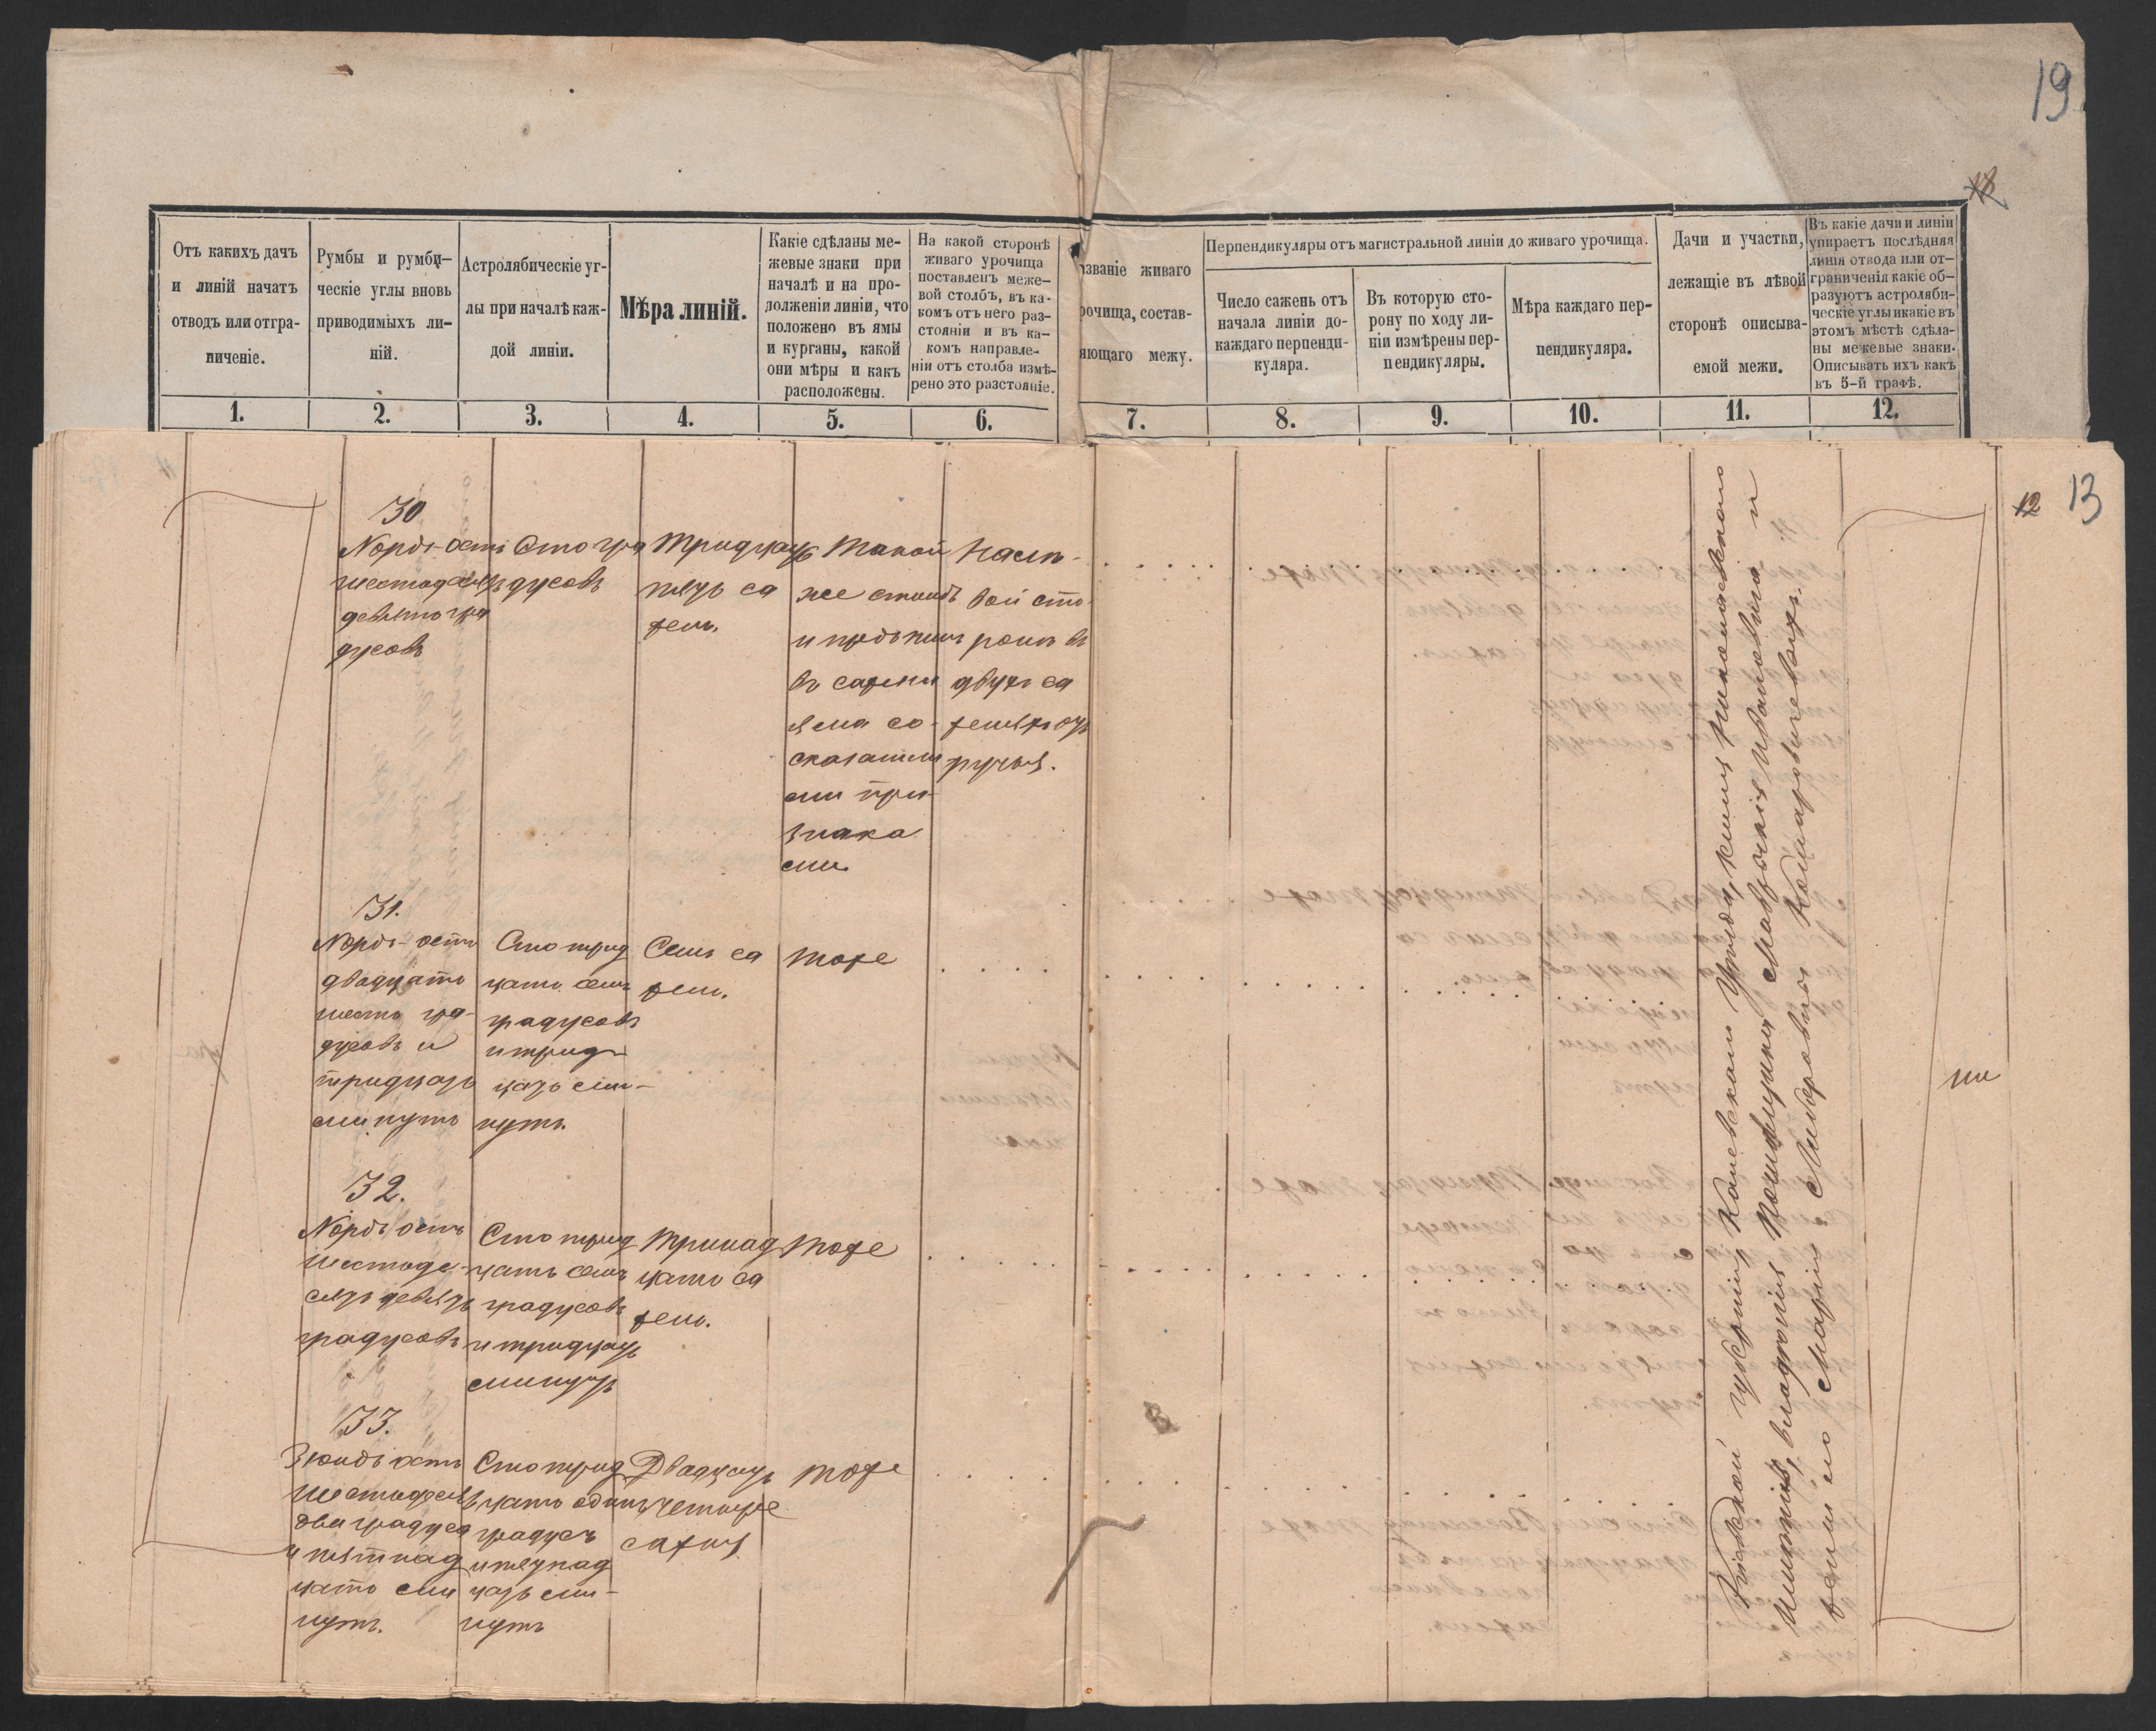 19
12
Отъ какихъ дачъ
и линій начатъ
отводъ или отгра-
ниченіе.
Румбы и румби-
ческіе углы вновь
приводимыхъ ли-
ній.
Астролябическіе уг-
лы при началѣ каж-
дой линіи.
Мѣра линій.
Какіе сдѣланы ме-
жевые знаки при
началѣ и на про-
долженіи линіи, что
положено въ ямы
и курганы, какой
они мѣры и какъ
расположены.
На какой сторонѣ
живаго урочища
поставленъ меже-
вой столбъ, въ ка-
комъ отъ него раз-
стояніи и въ ка-
комъ направле-
ніи отъ столба измѣ-
рено это разстояніе.
званіе живаго
рочища, состав-
яющаго межу.
Перпендикуляры отъ магистральной линіи до живаго урочища.
Число сажень отъ
начала линіи до-
каждаго перпенди-
куляра.
Въ которую сто-
рону по ходу ли-
ніи измѣрены пер-
пендикуляры.
Мѣра каждаго пер-
пендикуляра.
Дачи и участки,
лежащіе въ лѣвой
сторонѣ описыва-
емой межи.
Въ какіе дачи и линіи
упираетъ послѣдняя
линія отвода или от-
граниченія какіе об-
разуютъ астроляби-
ческіе углы и какіе въ
этомъ мѣстѣ сдѣла-
ны межевые знаки.
Описывать ихъ какъ
въ 5-й графѣ.
1. 2. 3. 4. 5. 6. 7. 8. 9. 10. 11. 12.
12 13
30
Нордъ-остъ
шестьдесятъ
девять гра
дусовъ
Сто гра
дусовъ
Тридцать
пять са
жень.
Такой
же столбъ
и предъ нимъ
въ сажени
яма со
сказанны
ми при-
знака
ми.
На лѣ-
вой сто-
ронѣ въ
двухъ са
женяхъ отъ
ручья.
31.
Нордъ-остъ
двадцать
шесть гра-
дусовъ и
тридцать
минутъ
Сто трид
цать семь
градусовъ
и трид-
цать ми-
нутъ.
Семь са
жень.
тоже
32.
Нордъ остъ
шестьде-
сятъ девять
градусовъ
Сто трид
цать семь
градусовъ
и тридцать
минутъ
Тринад
цать са
жень.
тоже
33.
Зюндъ остъ
шестьдесятъ
два градуса
и пятнад
цать ми
нутъ.
Сто трид
цать одинъ
градусъ
и пятнад
цать ми-
нутъ
Двадцать
четыре
сажня
тоже
Кіевской губерніи Каневскаго Уѣзда,
имѣнія, владѣнія Помѣщика